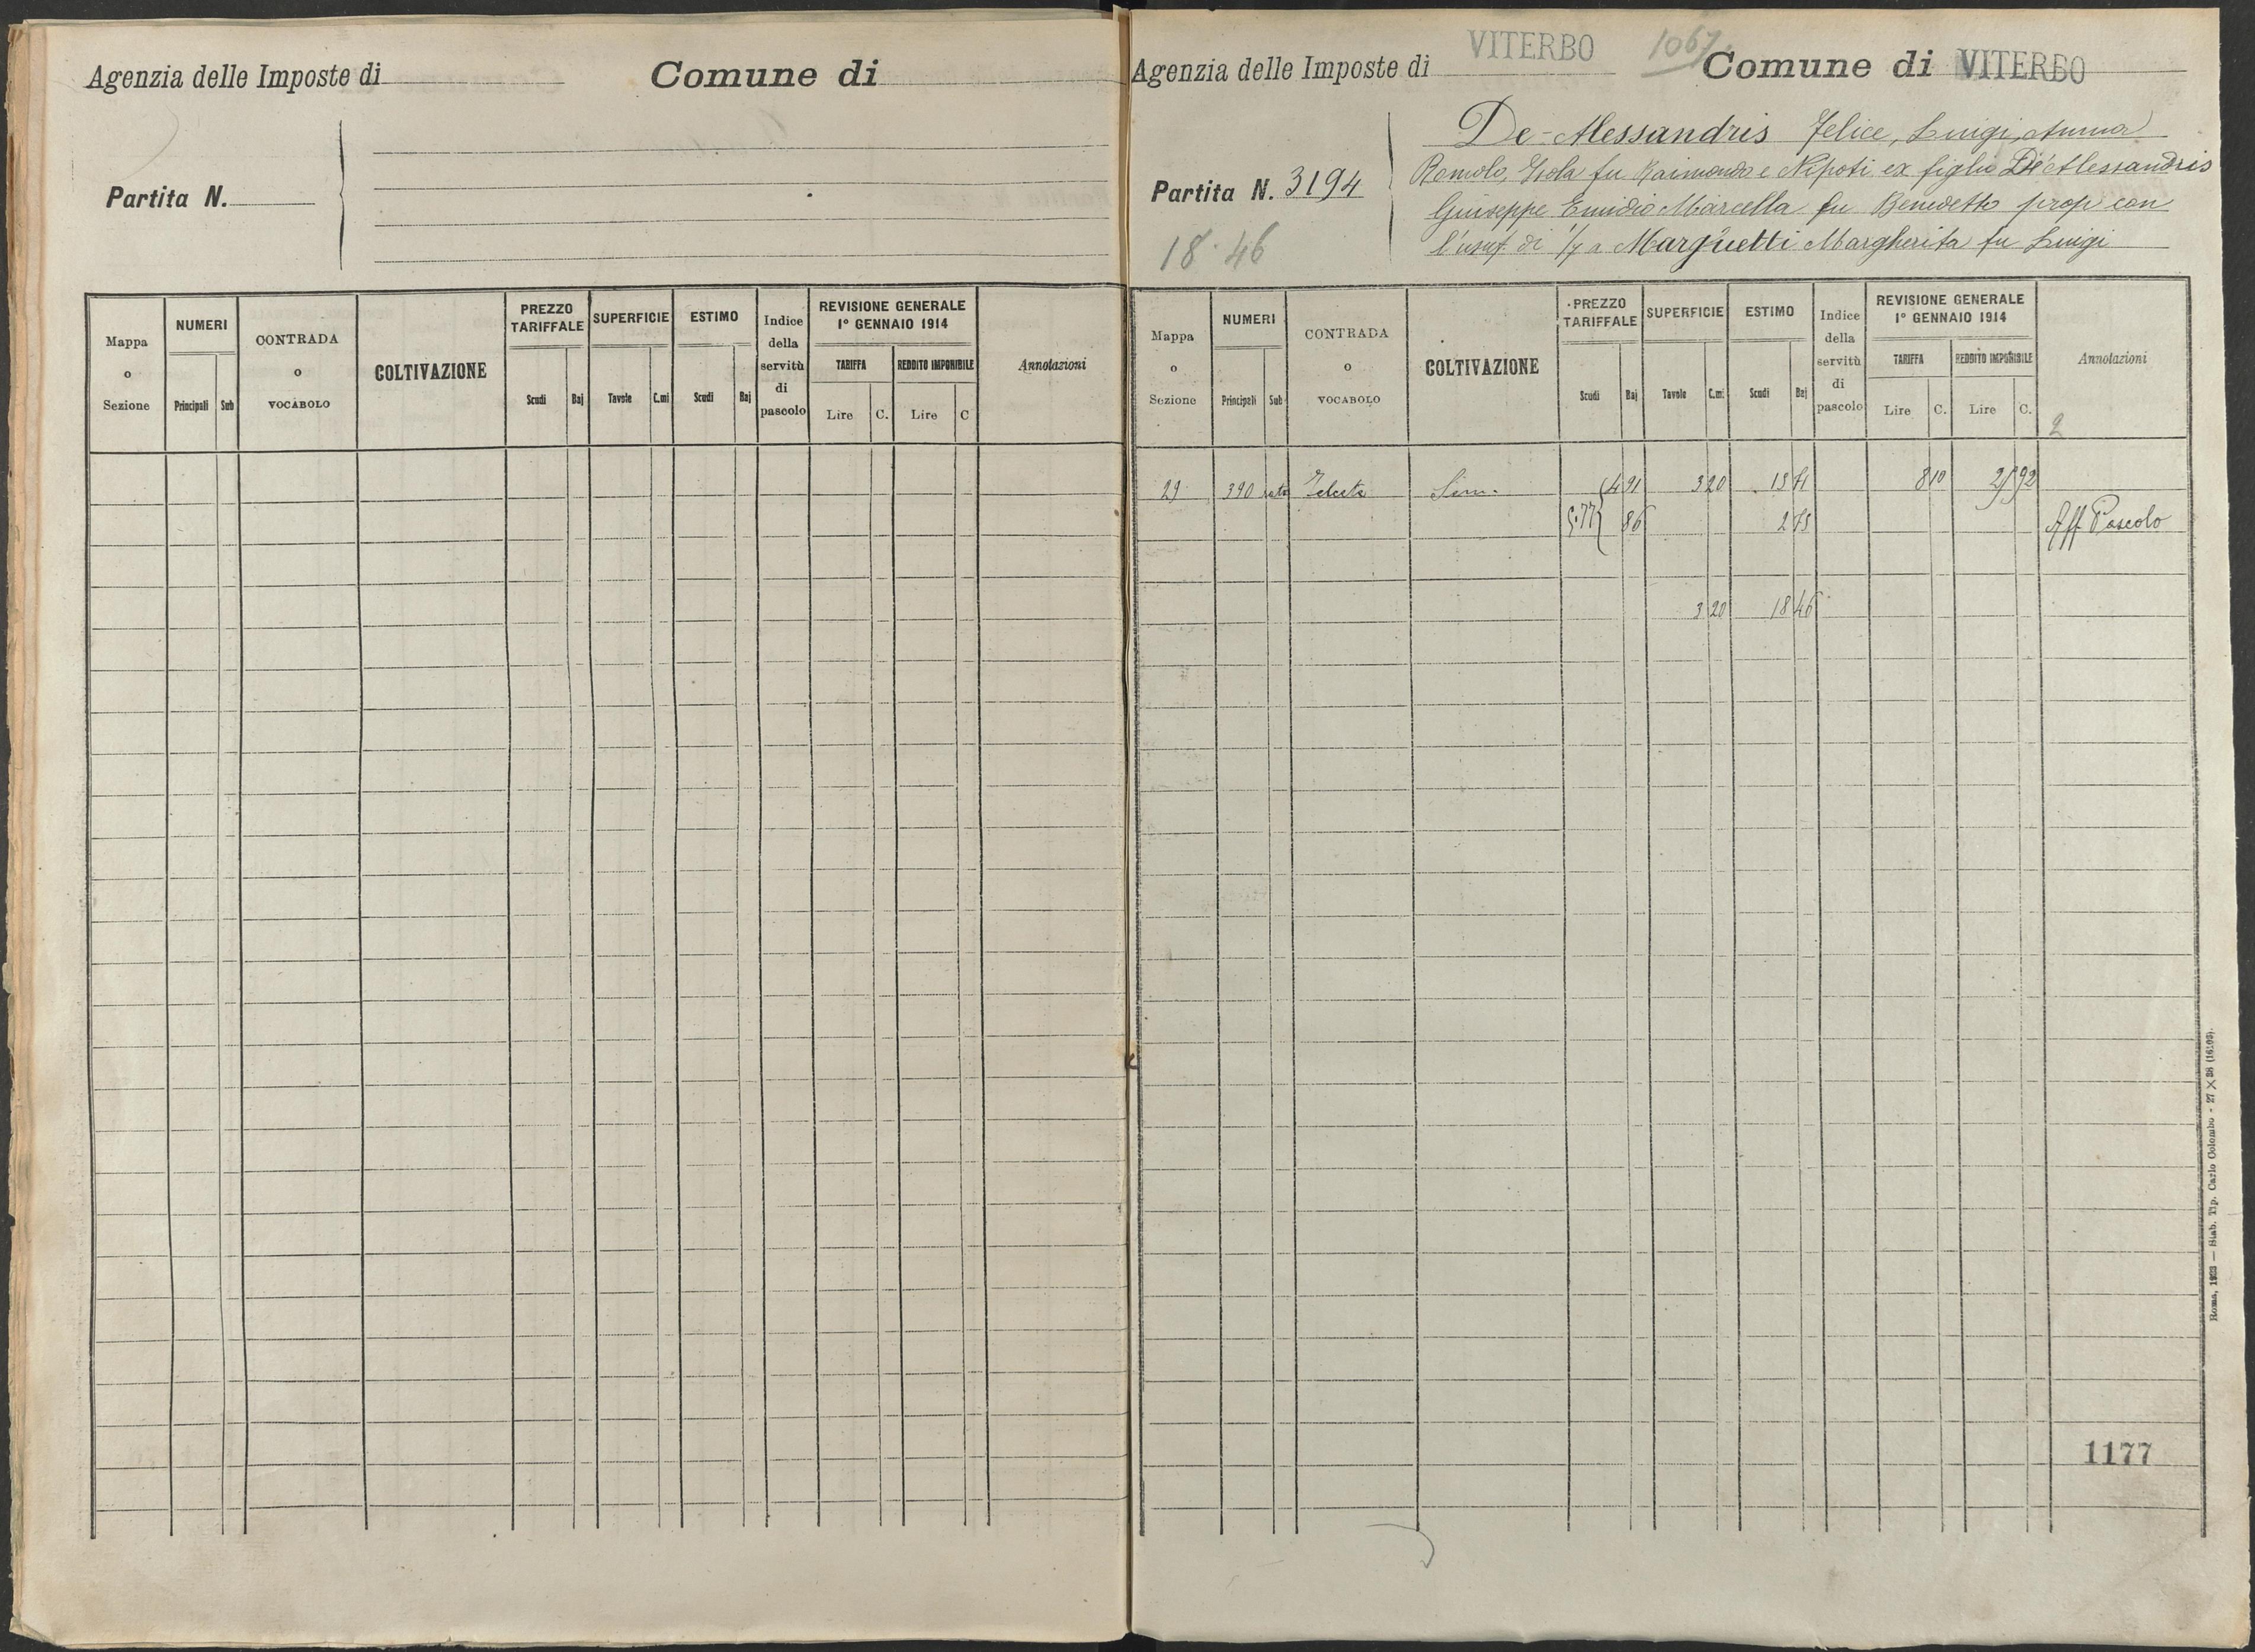 Agenzia delle Imposte di Comune di
Partita N.
Mappa o Sezione NUMERI Principali Sub CONTRADA o VOCABOLO COLTIVAZIONE PREZZO TARIFFALE Scudi Baj SUPERFICIE Tavole C.mi ESTIMO Scudi Baj Indice della servitù di pascolo REVISIONE GENERALE 1° GENNAIO 1914 TARIFFA Lire C. REDDITO IMPONIBILE Lire C Annotazioni
Agenzia delle Imposte di VITERBO 1067 Comune di VITERBO
De-Alessandris Felice, Luigi, Anna
Romolo, Isola fu Raimondo e Nipoti ex figlio De Alessandris
Partita N. 3194
Giuseppe Emidio Marcella fu Benedetto prop con
l'usuf. di 1/7 a Marguetti Margherita fu Luigi
18.46
Mappa o Sezione NUMERI Principali Sub CONTRADA o VOCABOLO COLTIVAZIONE PREZZO TARIFFALE Scudi Baj SUPERFICIE Tavole C.mi ESTIMO Scudi Baj Indice della servitù di pascolo REVISIONE GENERALE 1° GENNAIO 1914 TARIFFA Lire C. REDDITO IMPONIBILE Lire C. Annotazioni
2
29 390 Sem. 4 91 3 20 15 71 8 10 25 92
5.77 86 2 75 Aff Pascolo
3 20 18 46
1177
Roma, 1923 — Stab. Tip. Carlo Colombo - 27 × 38 (16103).